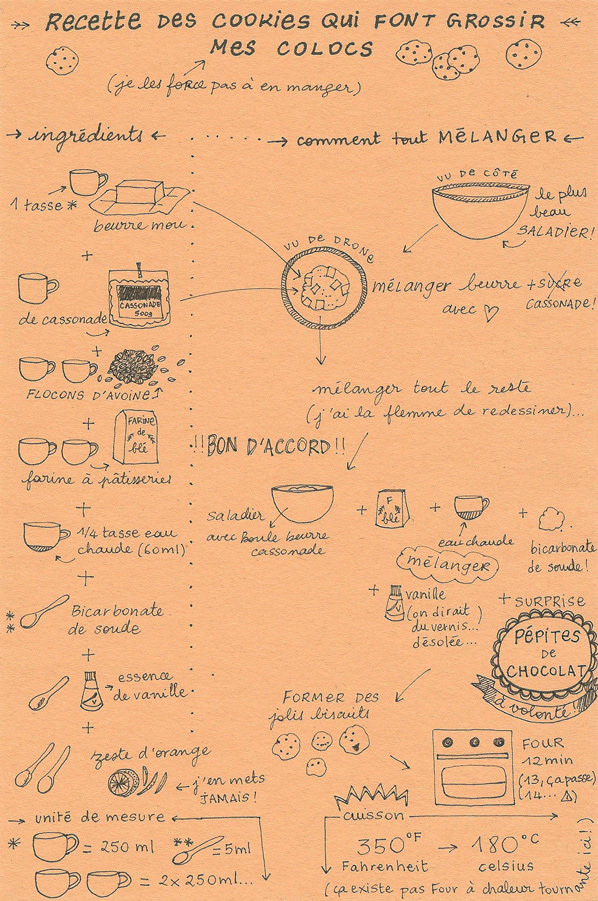 Recette des cookies qui font grossir
mes colocs
(je les force pas à en manger)
ingrédients
comment tout mélanger
1 tasse *
beurre mou
+
de cassonade
CASSONADE
500g
+
FLOCONS D'AVOINE
+
FARINE
de
blé
farine à pâtisserie
+
1/4 tasse eau
chaude (60ml)
+
**
Bicarbonate
de soude
+
essence
de vanille
+
zeste d'orange
j'en mets
JAMAIS!
VU DE CÔTÉ
le plus
beau
SALADIER!
VU DE DRONE
mélanger beurre + sucre
avec ♡ CASSONADE!
mélanger tout le reste
(j'ai la flemme de redessiner)...
!!BON D'ACCORD!!
saladier
avec boule beurre
cassonade
+
F
blé
+
eau chaude
+
bicarbonate
de soude!
mélanger
+
V
vanille
(on dirait)
du vernis...
désolée...
+ SURPRISE
PÉPITES
DE
CHOCOLAT
à volonté!
FORMER DES
jolis biscuits
FOUR
12 min
(13, ça passe)
(14... ⚠)
cuisson
350°F → 180°C
Fahrenheit celsius
(ça existe pas Four à chaleur tournante ici!)
unité de mesure
* = 250 ml ** = 5ml
= 2x250ml...